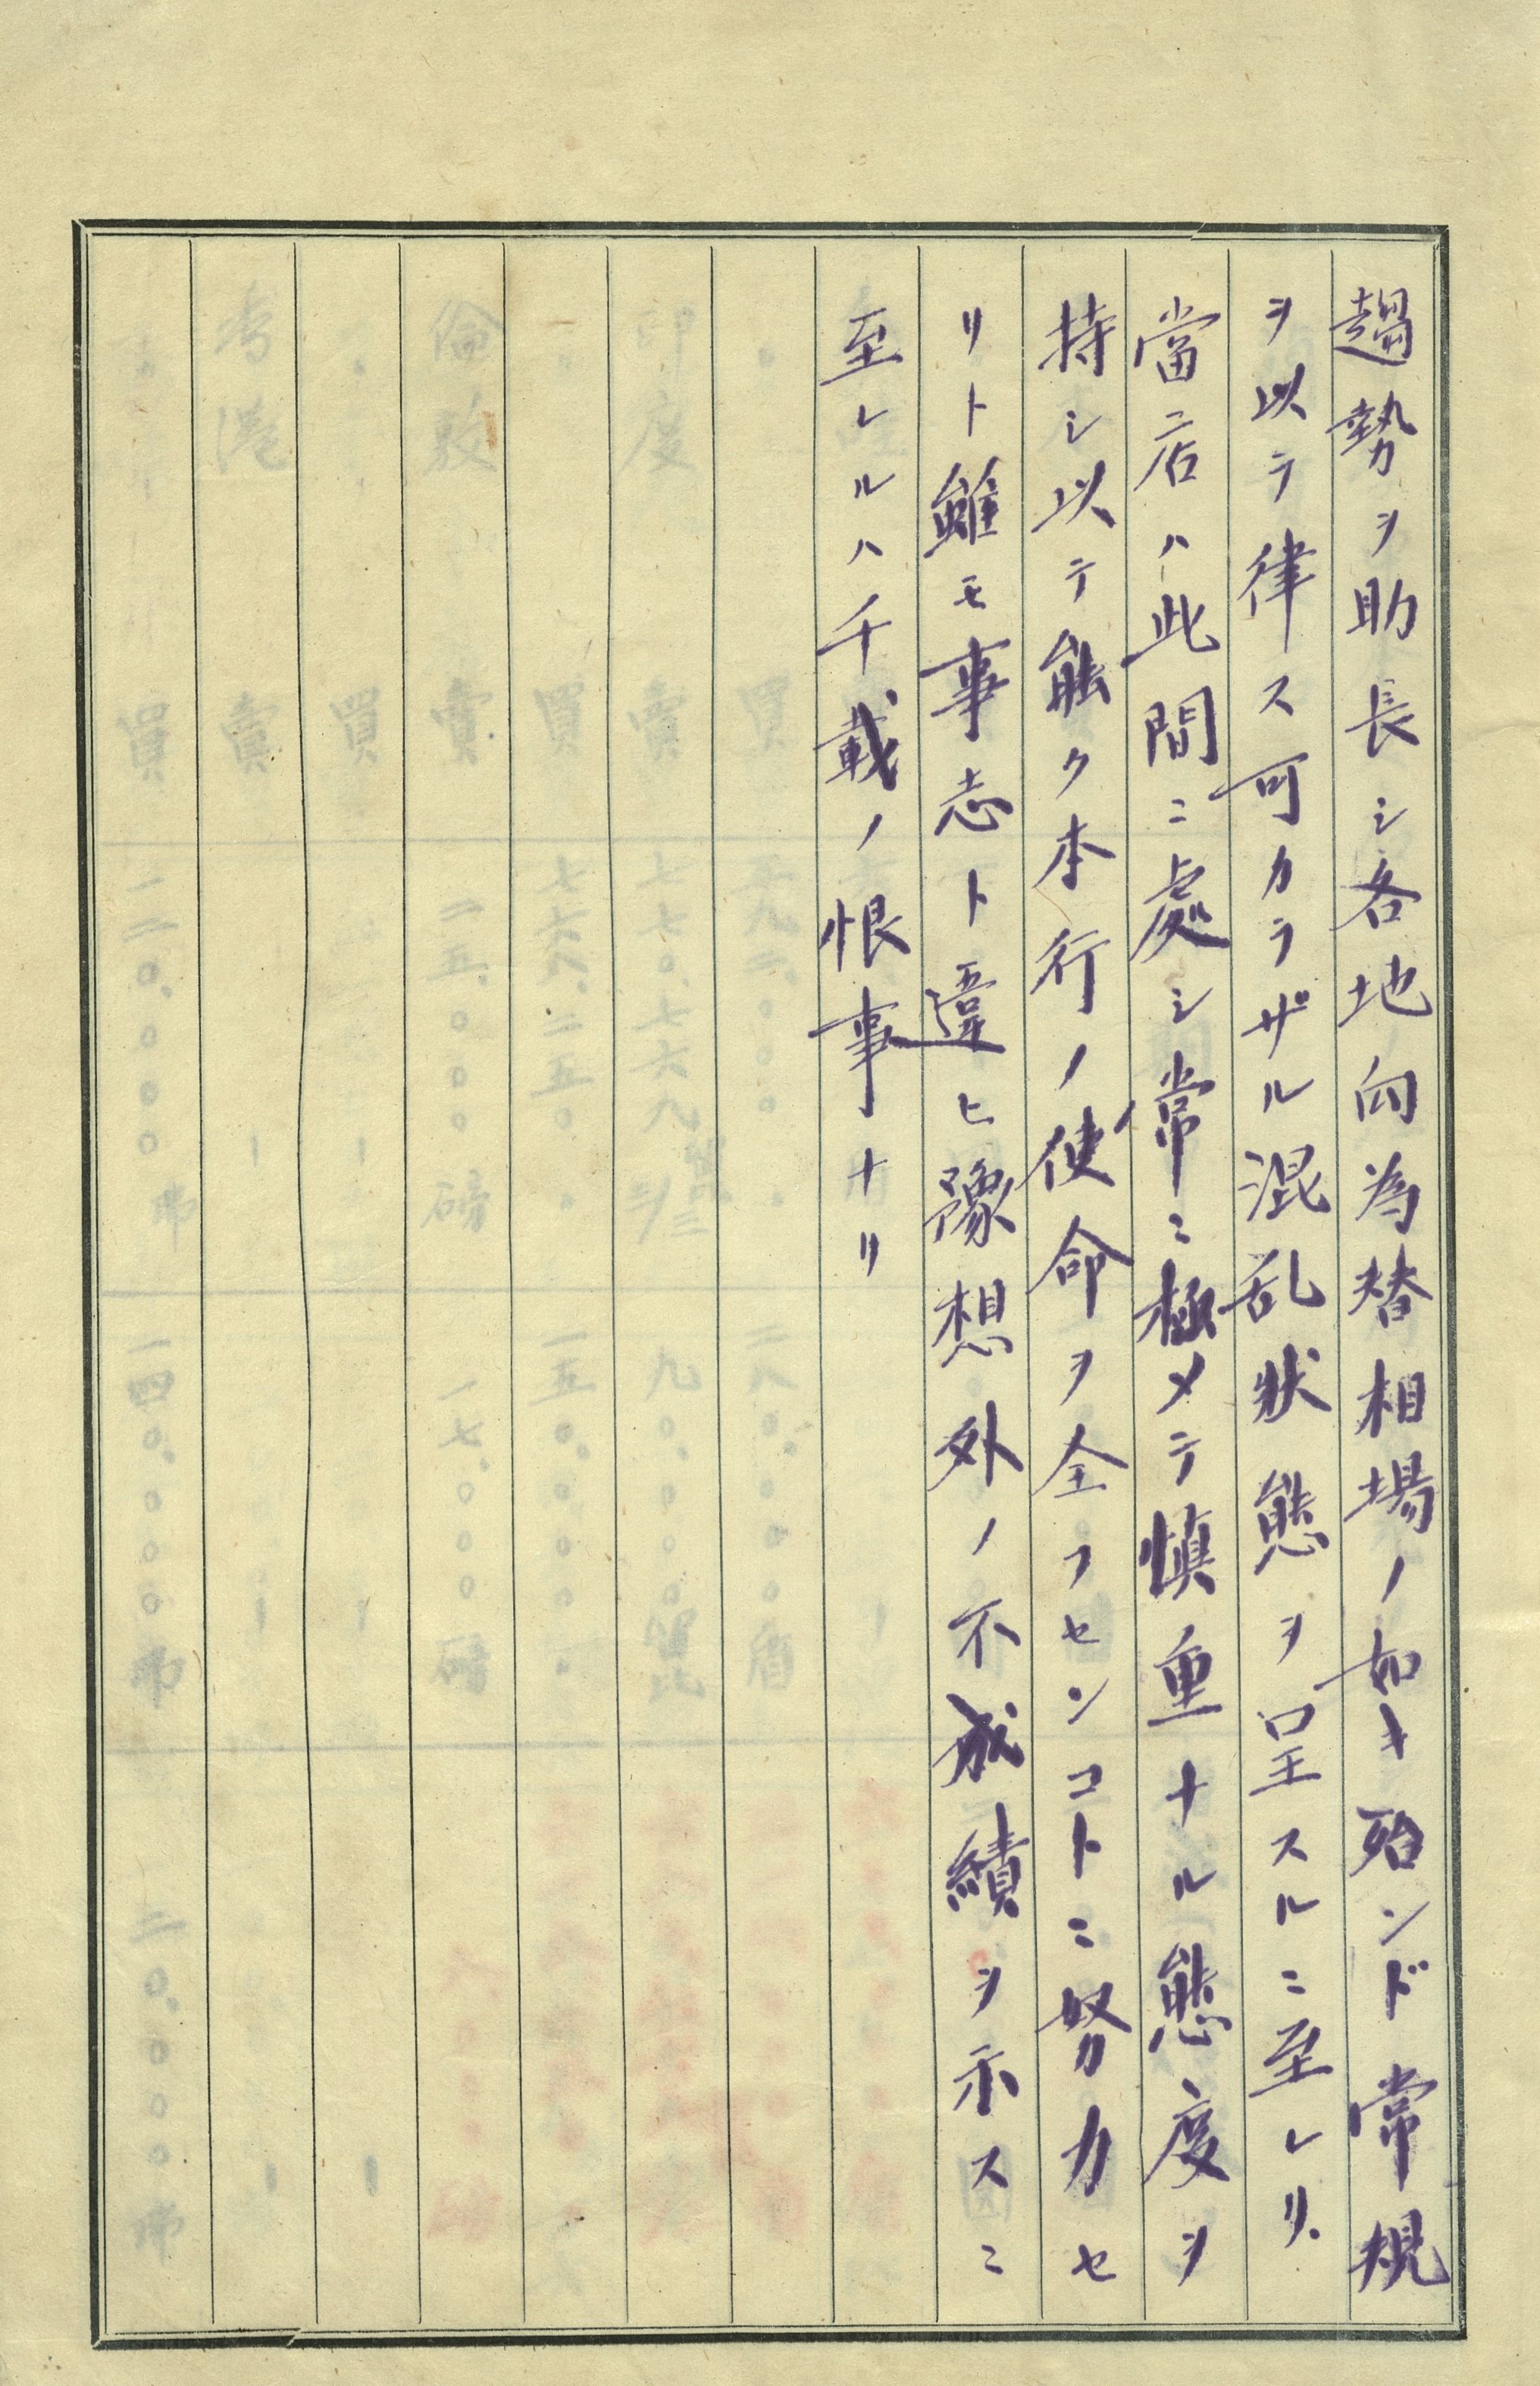 趨勢ヲ助長シ各地向為替相場ノ如キ殆ンド常規
ヲ以テ律ス可カラザル混乱状態ヲ呈スルニ至レリ.
當店ハ此間ニ處シ常ニ極メテ慎重ナル態度ヲ
持シ以テ能ク本行ノ使命ヲ全フセンコトニ努力セ
リト雖モ事志ト違ヒ豫想外ノ不成績ヲ示スニ
至レルハ千載ノ恨事ナリ